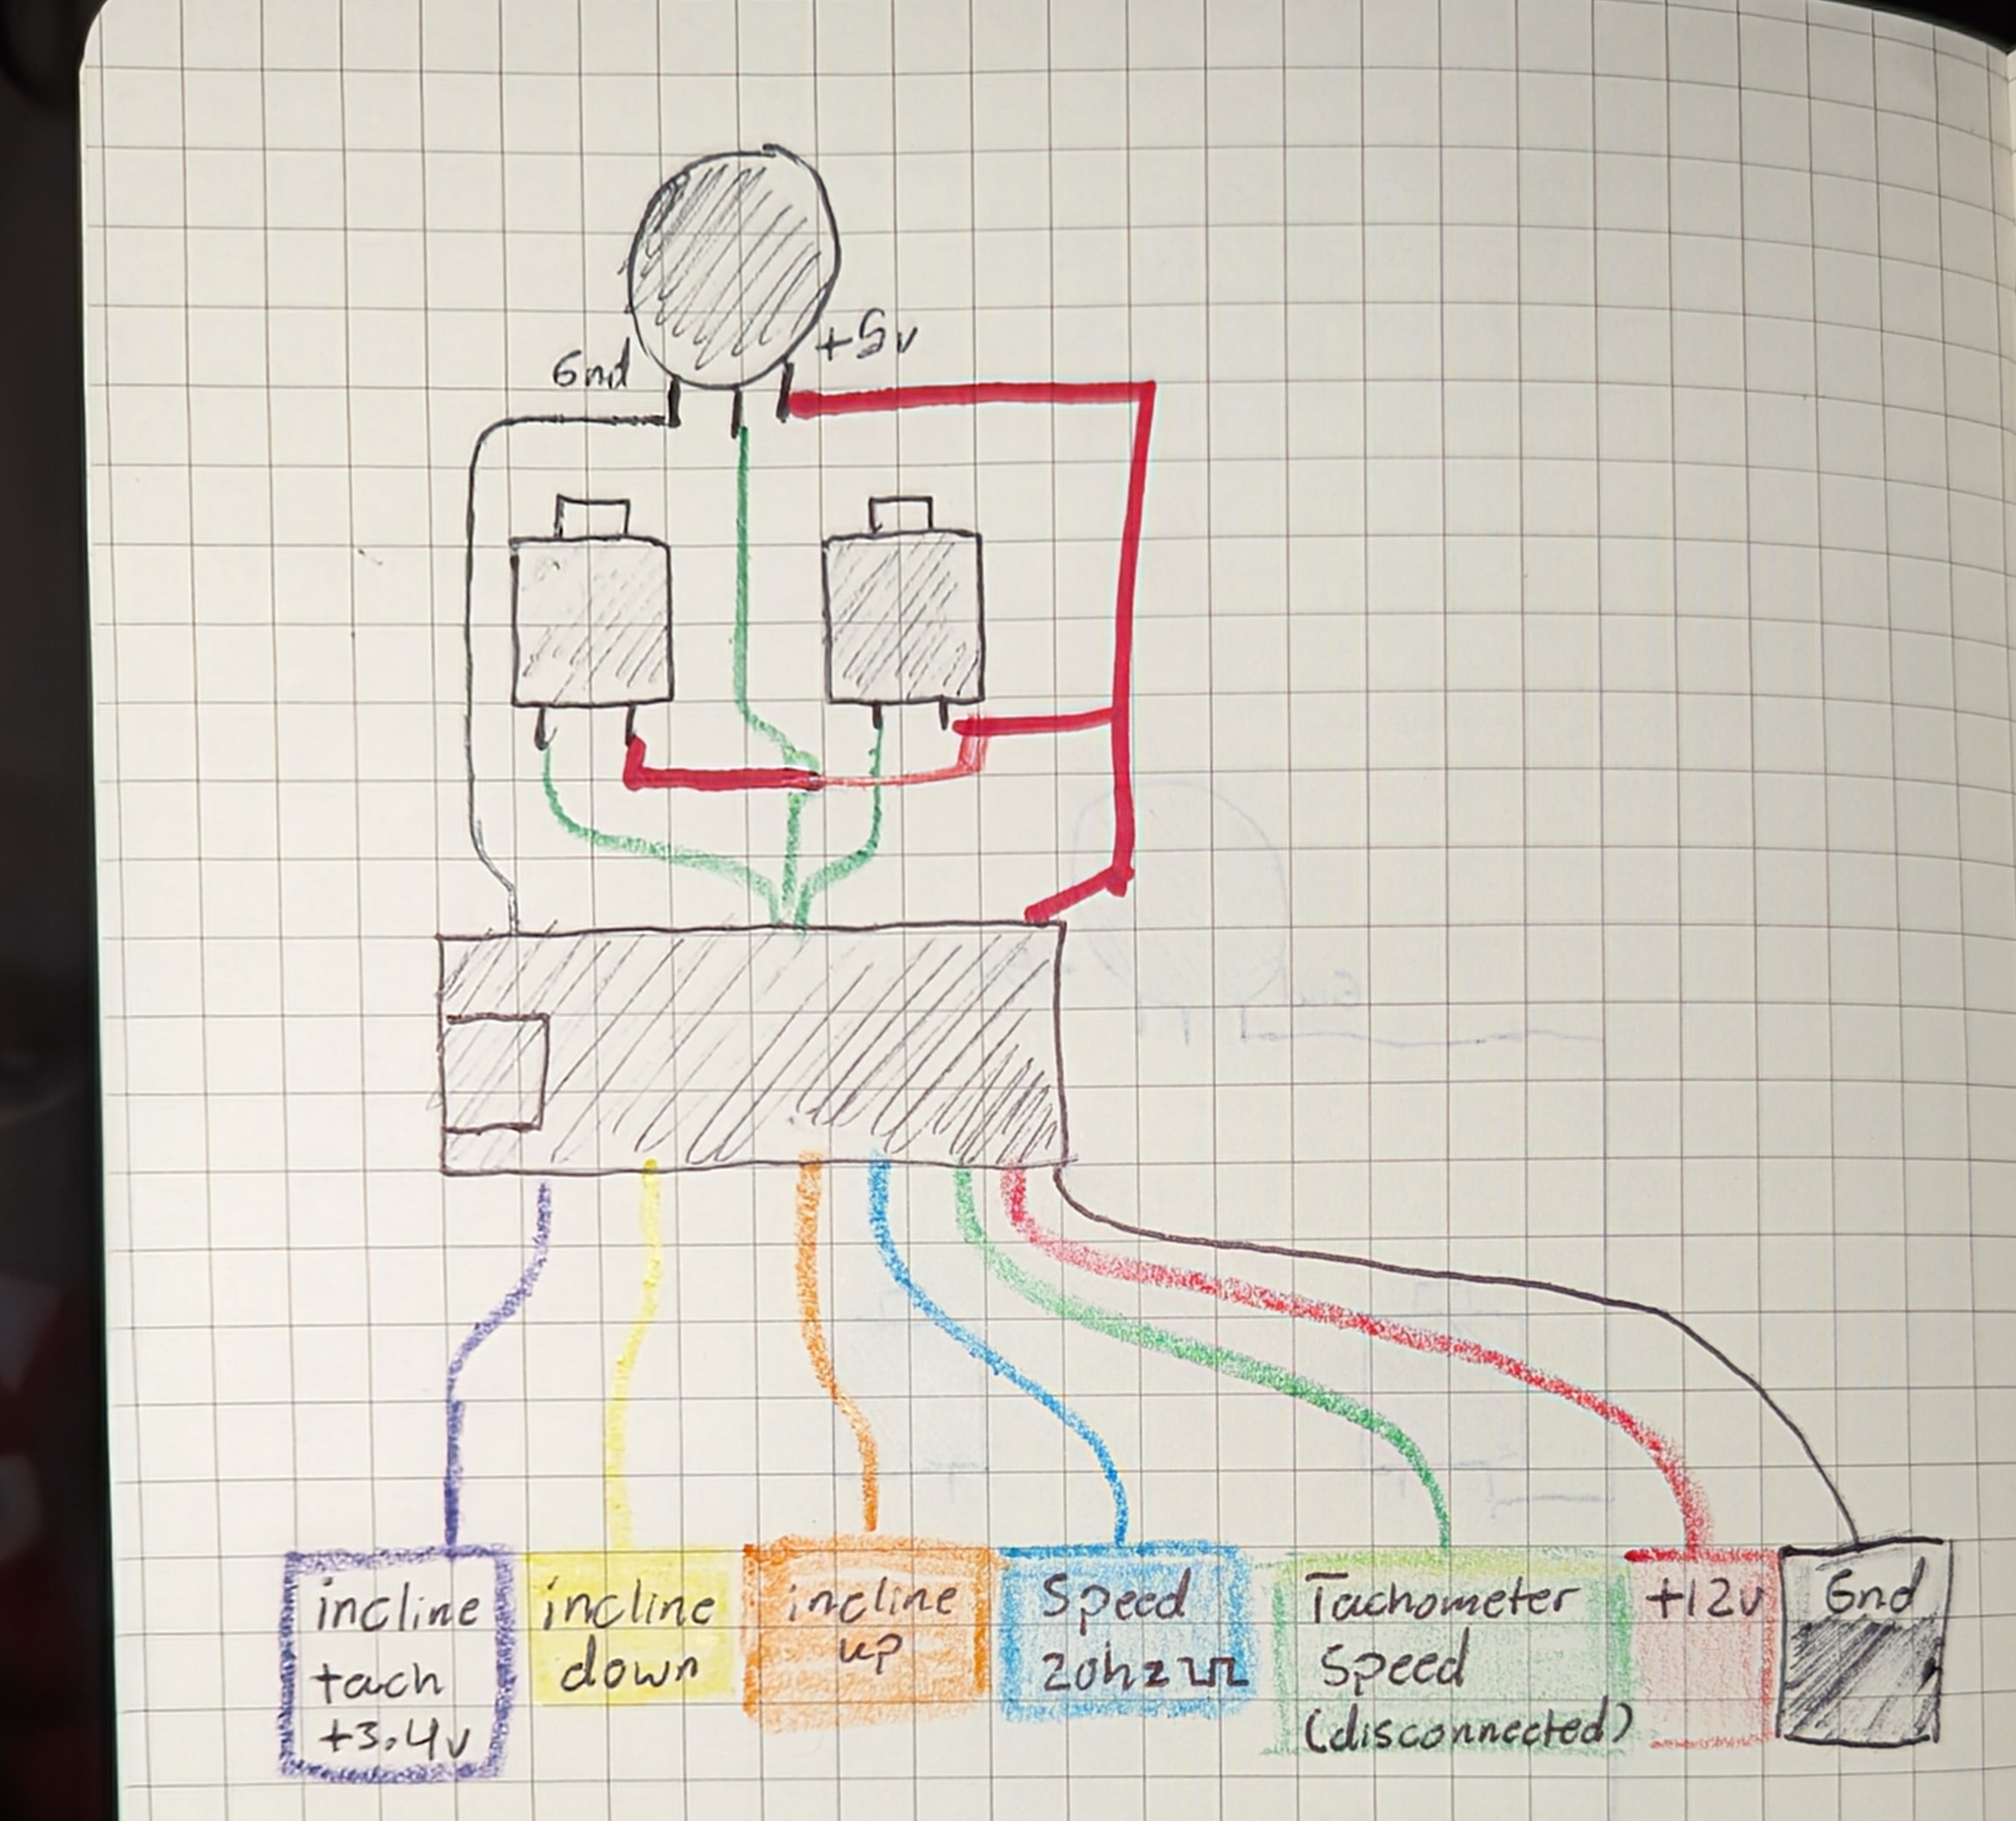 +5v
Gnd
incline
tach
+3.4v
incline
down
incline
up
Speed
20hz
Tachometer
Speed
(disconnected)
+12v
Gnd